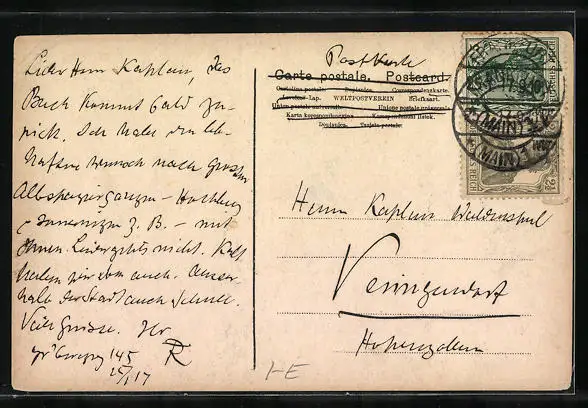 Lieber Herr Kaplan, das
Buch kommt bald zu-
rück. Ich habe den leb-
haften Wunsch nach großen
Albspaziergängen - Hochberg
z. B. - mit
Ihnen. Leider geht's nicht. Kalt
haben wir's eben auch. Ausser-
halb der Stadt auch Schnee.
Viele Grüsse. Ihr
R
145
25/I 17
Postkarte
Carte postale. Postcard.
Cartolina postale. Dopisnice. Correspondenzkarte.
Levelező-Lap. WELTPOSTVEREIN Briefkaart.
Union postale universelle. Unione postale universale.
Karta korespondencyjna Korespondenční lístek.
Dopisnica. Tarjeta postal.
Herrn Kaplan Waldenspul
Veringendorf
Hohenzollern
HE
(MAIN)
DEUTSCHES REICH
2½